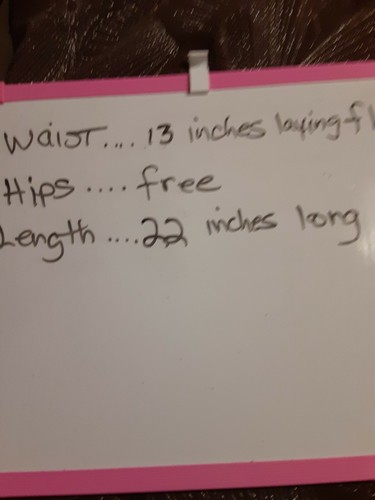 Waist.... 13 inches laying fl
Hips ..... free
Length ....22 inches long